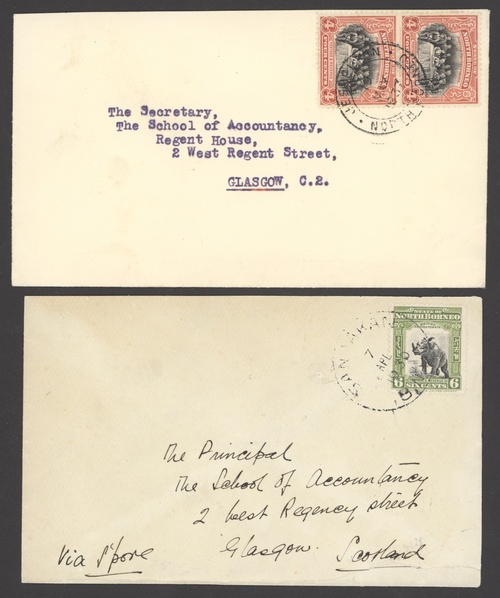 The Secretary,
The School of Accountancy,
Regent House,
2 West Regent Street,
GLASGOW, C.2.
JESSELTON
NORTH
STATE OF
NORTH BORNEO
6 6
SIX CENTS
SANDAKAN
7
APL
The Principal
The School of Accountancy
2 West Regency street
Glasgow. Scotland
Via S'pore